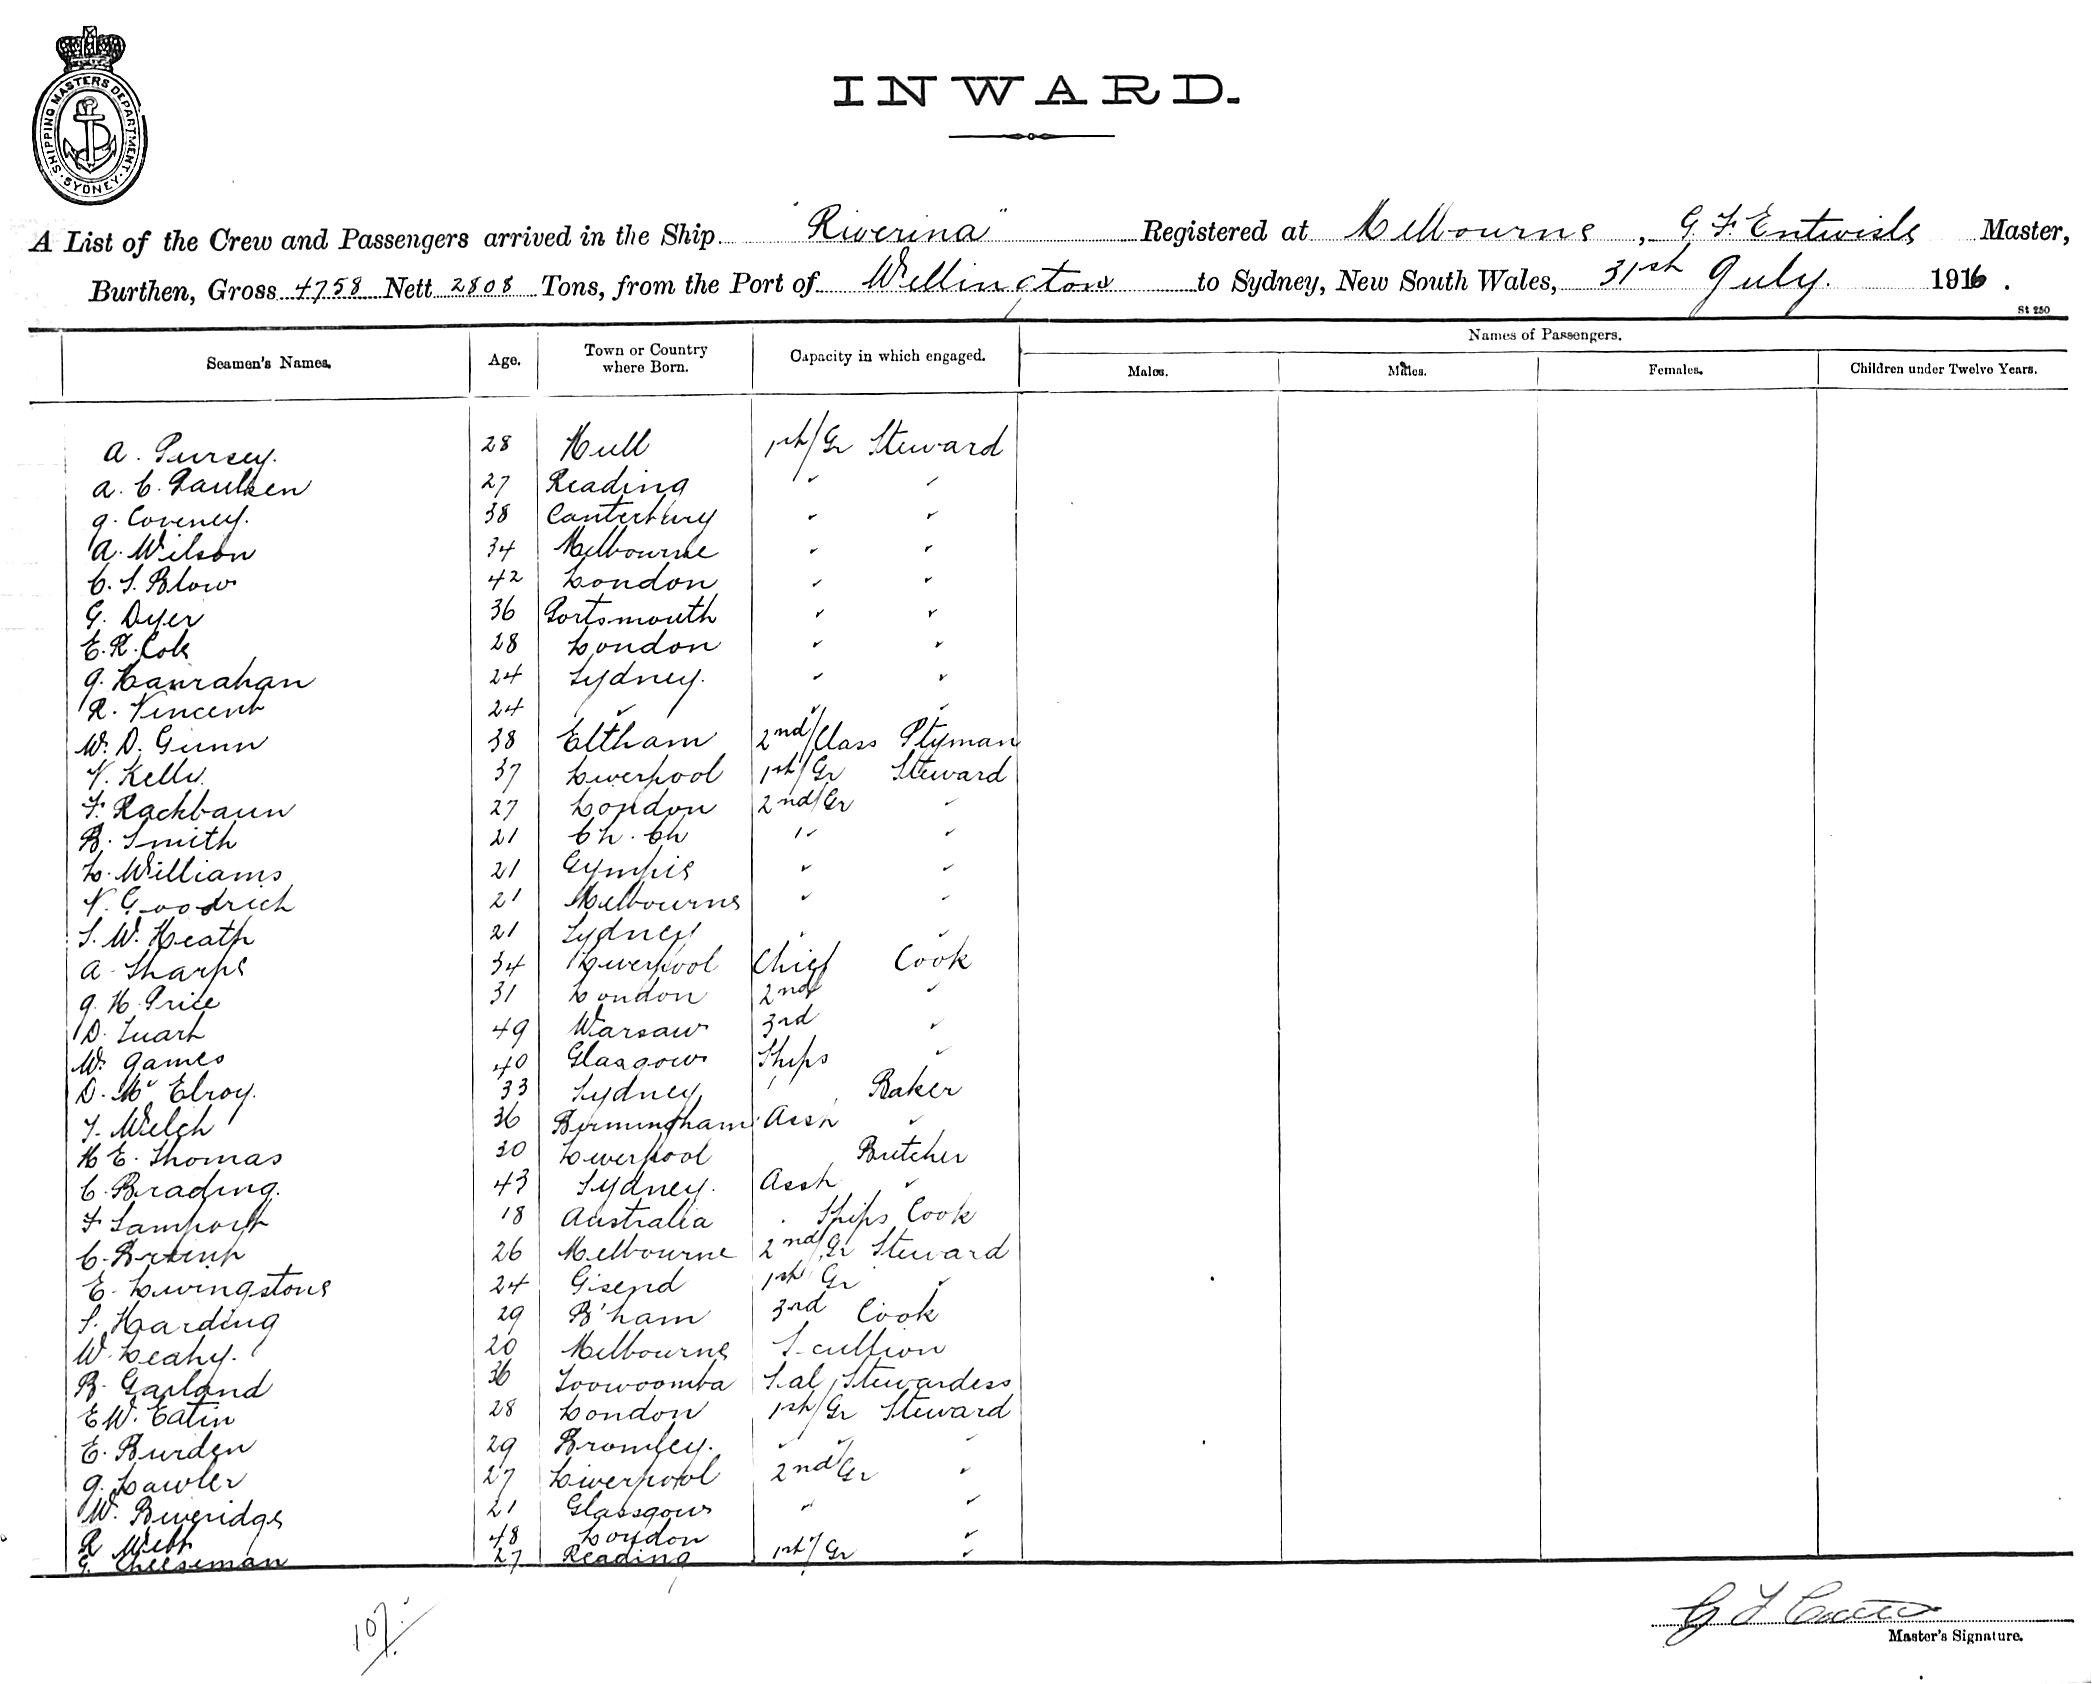 SHIPPING MASTERS DEPARTMENT. SYDNEY.
INWARD.
A List of the Crew and Passengers arrived in the Ship "Riverina" Registered at Melbourne, G F Entwisle Master,
Burthen, Gross 4758 Nett 2808 Tons, from the Port of Wellington to Sydney, New South Wales, 31st July. 1916.
St 250
Names of Passengers.
Seamen's Names. Age. Town or Country where Born. Capacity in which engaged. Males. Males. Females. Children under Twelve Years.
A. Pursey. 28 Hull 1st/Gr Steward
A. C. Paulsen 27 Reading " "
J. Coveney. 38 Canterbury " "
A. Wilson 34 Melbourne " "
C. S. Blow 42 London " "
G. Dyer 36 Portsmouth " "
E. R. Cole 28 London " "
J. Hanrahan 24 Sydney. " "
R. Vincent 24 " " "
W. D. Gunn 38 Eltham 2nd/Class Ptyman
V. Kelly. 37 Liverpool 1st/Gr Steward
F. Rackbaun 27 London 2nd/Gr "
B. Smith 21 Ch. Ch " "
L. Williams 21 Gympie " "
V. Goodrich 21 Melbourne " "
S. W. Heath 21 Sydney " "
A. Sharpe 34 Liverpool Chief Cook
J. H. Price 31 London 2nd "
D. Luart 49 Warsaw 3rd "
W. James 40 Glasgow Ships "
D. Mc Elroy. 33 Sydney " Baker
T. Welch 36 Birmingham Asst "
H E. Thomas 30 Liverpool Butcher
C. Brading. 43 Sydney. Asst "
F Lamport 18 Australia . Ships Cook
C. 26 Melbourne 2nd/Gr Steward
E. Livingstone 24 1st Gr "
S. Harding 29 B'ham 3rd Cook
W. Leahy. 20 Melbourne Scullion
B. Garland 36 Toowoomba Sal Stewardess
E W. Eatin 28 London 1st/Gr Steward
E. Burden 29 Bromley. " " "
J. Lawler 27 Liverpool 2nd/Gr "
W. Beveridge 21 Glassgow " "
R Webb 48 London "
G. Cheeseman 27 Reading 1st/Gr "
107.
G F
Master's Signature.